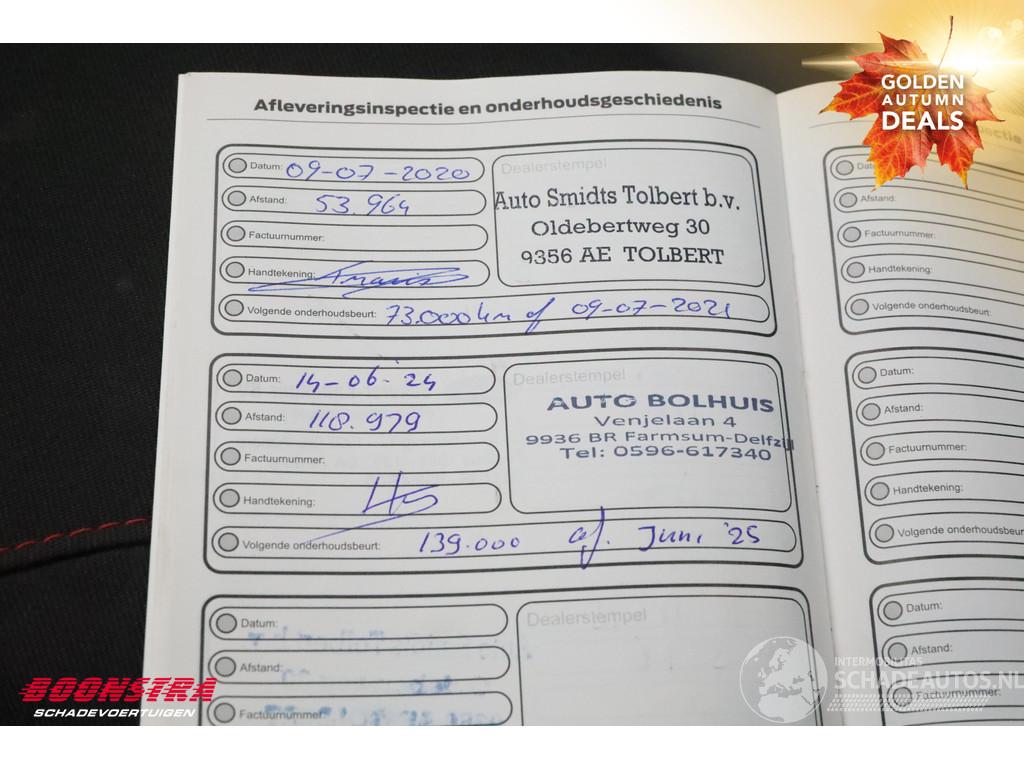 GOLDEN
AUTUMN
DEALS
Afleveringsinspectie en onderhoudsgeschiedenis
Datum: 09-07-2020
Afstand: 53.964
Factuurnummer:
Handtekening:
Volgende onderhoudsbeurt: 73.000 km of 09-07-2021
Dealerstempel
Auto Smidts Tolbert b.v.
Oldebertweg 30
9356 AE TOLBERT
Datum: 14-06-24
Afstand: 118.979
Factuurnummer:
Handtekening:
Volgende onderhoudsbeurt: 139.000 of. Juni '25
Dealerstempel
AUTO BOLHUIS
Venjelaan 4
9936 BR Farmsum-Delfzijl
Tel: 0596-617340
Datum:
Afstand:
Factuurnummer
Dealerstempel
Afstand:
Factuurnummer:
Handtekening:
Volgende onderhoudsbeurt:
Datum:
Afstand:
Factuurnummer:
Handtekening:
Volgende onderhoudsbeurt
Datum:
Afstand:
Factuurnummer:
BOONSTRA
SCHADEVOERTUIGEN
INTERMOBILITAS
SCHADEAUTOS.NL